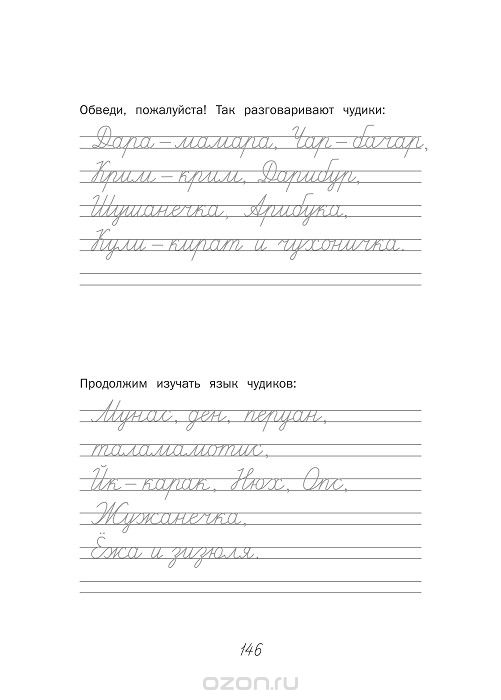 Обведи, пожалуйста! Так разговаривают чудики:
Дара – мамара, Чар – бачар,
Крим – крим, Дарибур,
Шушанечка, Арибука,
Кули – кират и чухоничка.
Продолжим изучать язык чудиков:
Мунас, ден, перуан,
таламамотис,
Йк – карак, Нюх, Опс,
Жужанечка,
Ёжа и зизюля.
146
ozon.ru